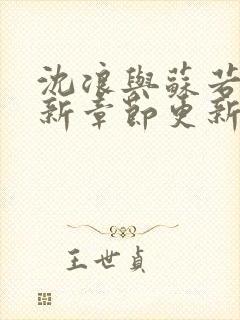 沈浪與蘇若
新章節更新
王世貞